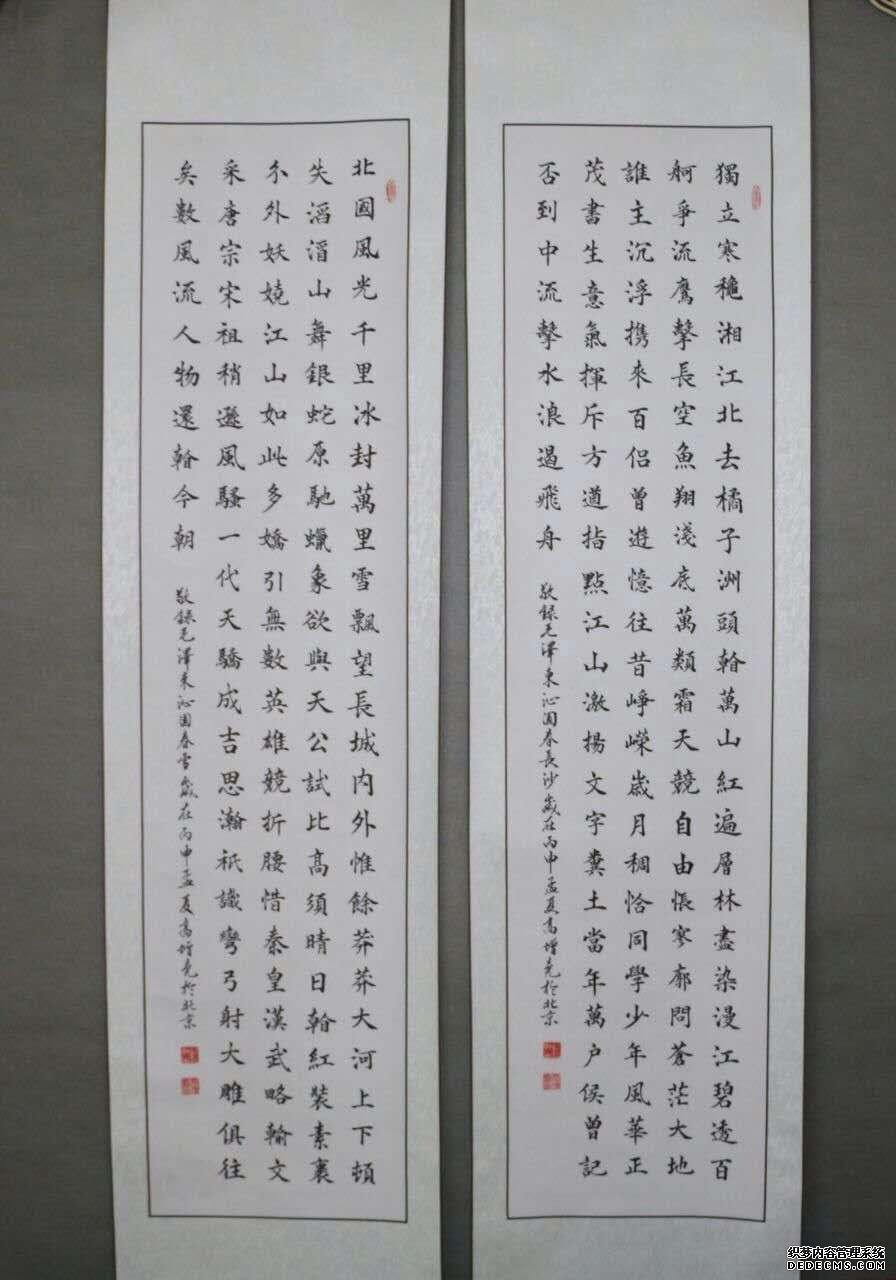 獨立寒穐湘江北去橘子洲頭看萬山紅遍層林盡染漫江碧透百
舸爭流鷹擊長空魚翔淺底萬類霜天競自由悵寥廓問蒼茫大地
誰主沉浮携來百侶曾遊憶往昔崢嶸歲月稠恰同學少年風華正
茂書生意氣揮斥方遒指點江山激揚文字糞土當年萬户侯曾記
否到中流擊水浪遏飛舟
敬録毛澤東沁園春長沙歲在丙申孟夏高增亮於北京
北國風光千里冰封萬里雪飄望長城内外惟餘莽莽大河上下頓
失滔滔山舞銀蛇原馳蠟象欲與天公試比高須晴日看紅裝素裹
分外妖嬈江山如此多嬌引無數英雄競折腰惜秦皇漢武略輸文
采唐宗宋祖稍遜風騷一代天驕成吉思瀚祇識彎弓射大雕俱往
矣數風流人物還看今朝
敬録毛澤東沁園春雪歲在丙申孟夏高增亮於北京
织梦内容管理系统
DEDECMS.COM